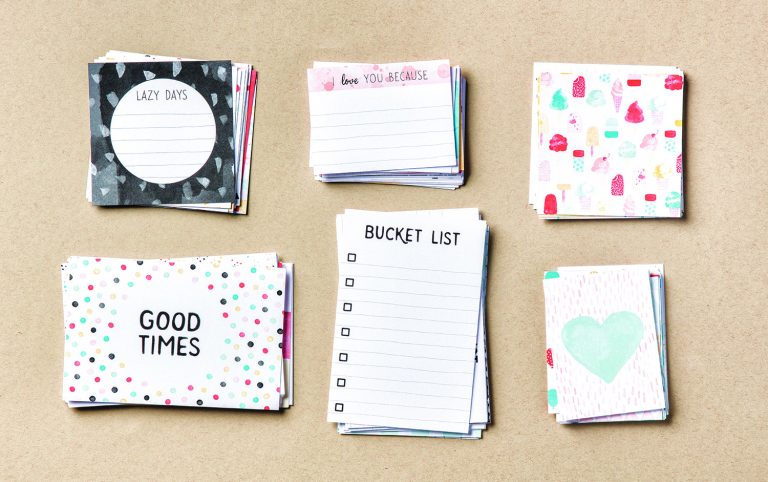 LAZY DAYS
I love YOU BECAUSE
BUCKET LIST
GOOD
TIMES